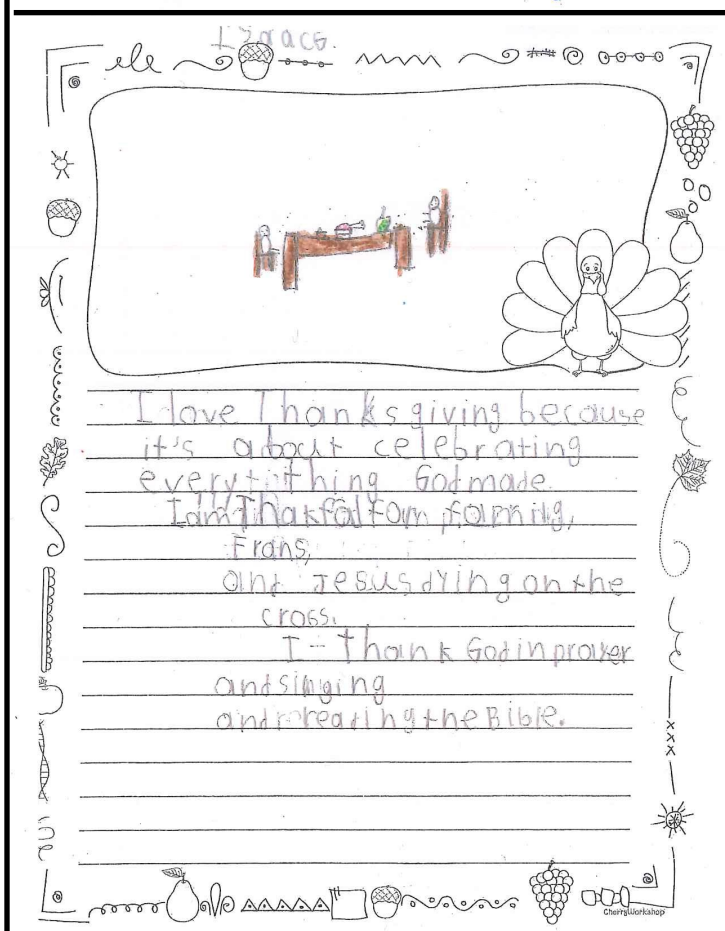 Isaac G.
I love Thanksgiving because
it's about celebrating
everytithing God made.
I am Thakfal
Frans,
and Jesus dying on the
cross.
I - Thank God in prayer
and singing
and reading the Bible.
CherryWorkshop